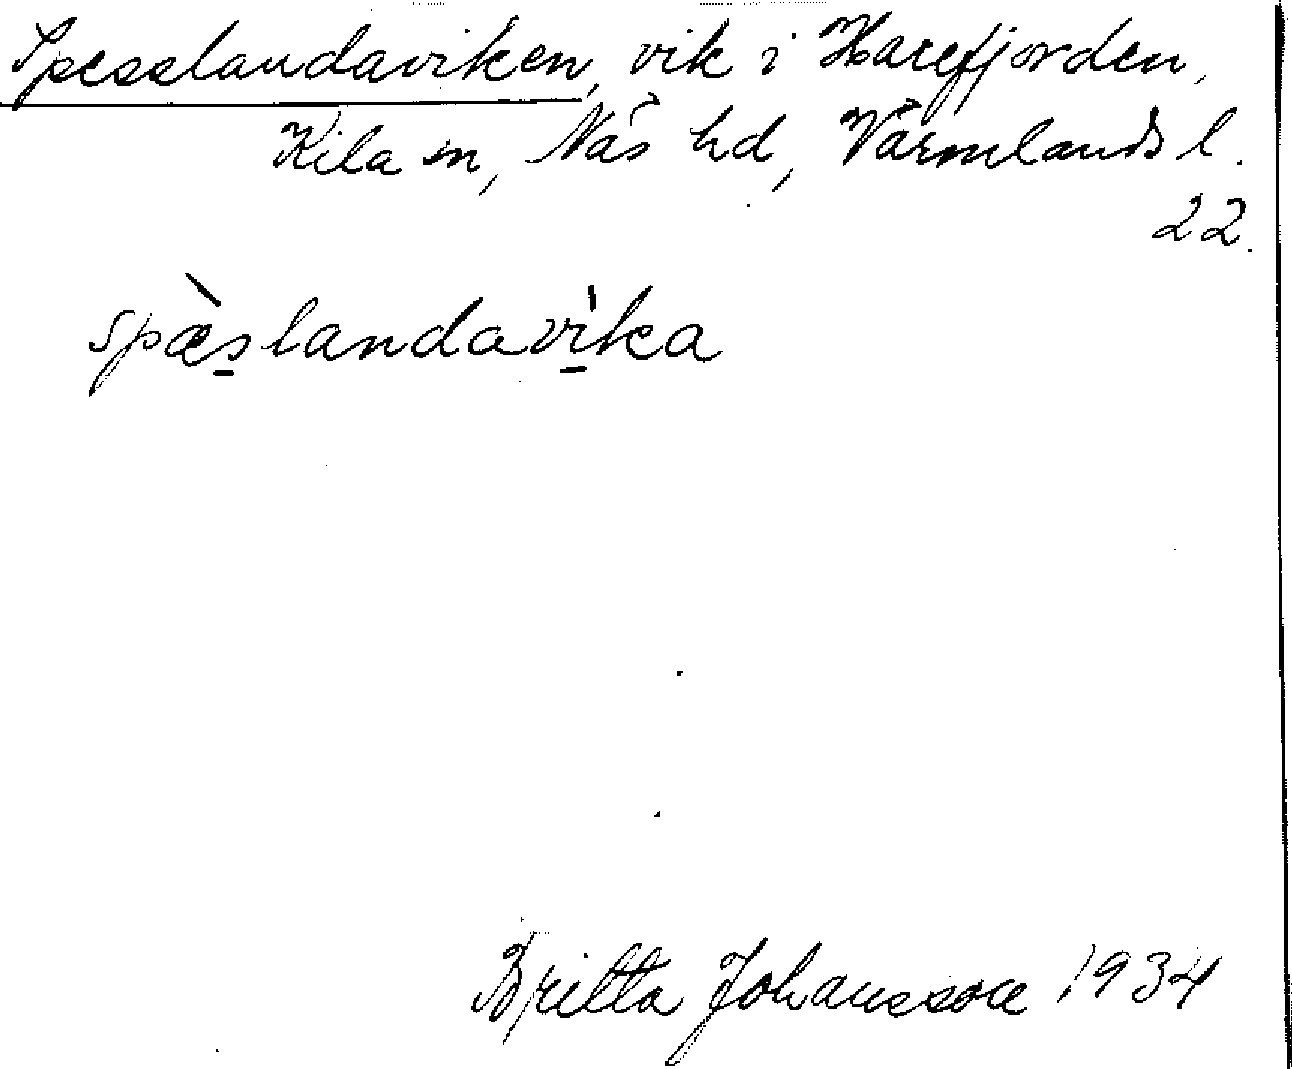 Spesslandaviken, vik i Harefjorden,
Kila sn, Näs hd, Värmlands l.
22.
spæ̀slandavika
Britta Johansson 1934